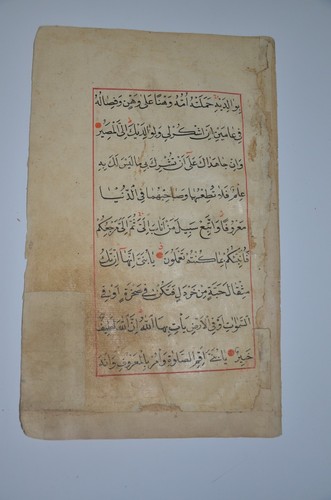 بوالديه حملته امه وهنا على وهن وفصاله
في عامين ان اشكر لي ولوالديك الى المصير
وان جاهداك على ان تشرك بي ما ليس لك به
علم فلا تطعهما وصاحبهما في الدنيا
معروفا واتبع سبيل من اناب الى ثم الى مرجعكم
فانبئكم بما كنتم تعملون يا بنى انها ان تك
مثقال حبة من خردل فتكن في صخرة او في
السموات او في الارض يات بها الله ان الله لطيف
خبير يا بنى اقم الصلوة وامر بالمعروف وانه